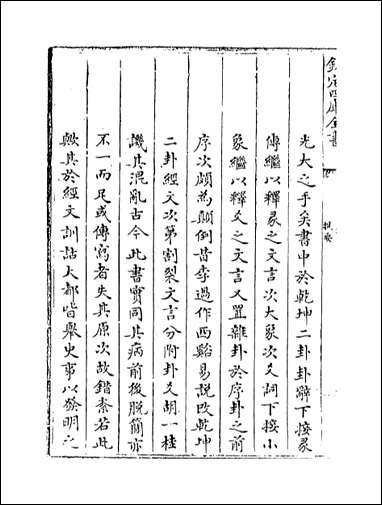 欽定四庫全書
提要
光大之乎矣書中於乾坤二卦卦辭下接彖
傳繼以釋彖之文言次大象次爻詞下接小
象繼以釋爻之文言又置雜卦於序卦之前
序次頗為顛倒昔李過作西谿易說改乾坤
二卦經文次第割裂文言分附卦爻胡一桂
譏其混亂古今此書實同其病前後脫簡亦
不一而足或傳寫者失其原次故錯紊若此
歟其於經文訓詁大都皆舉史事以發明之